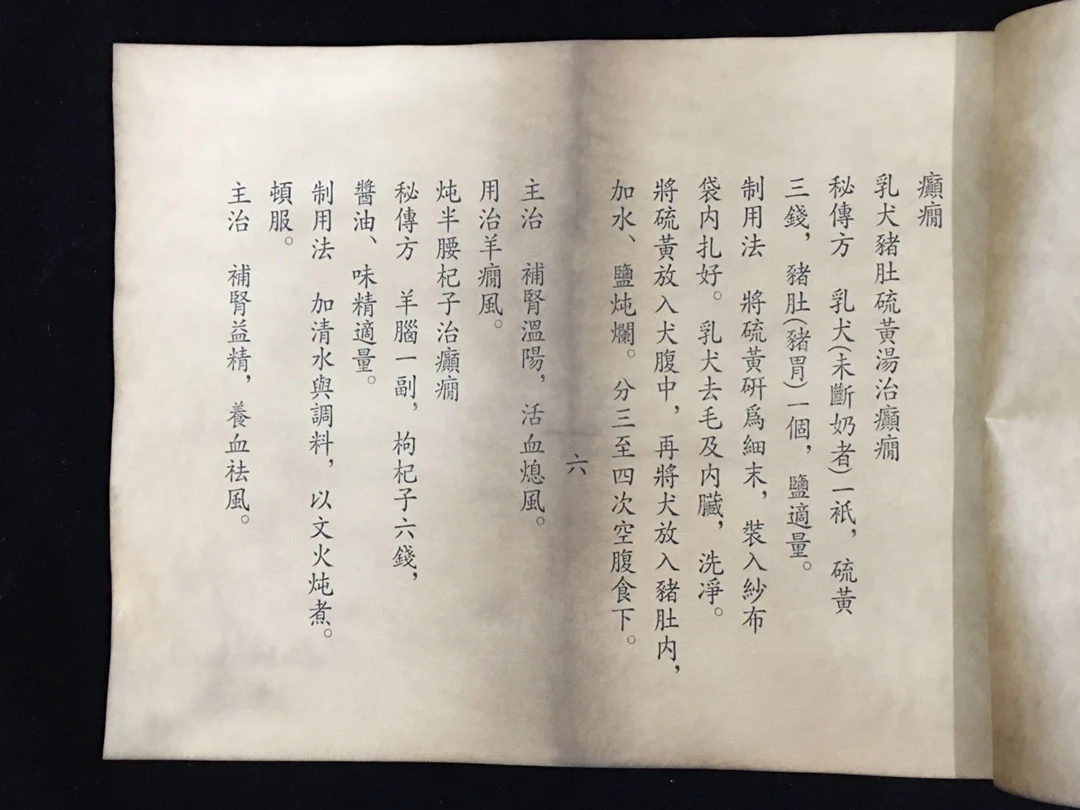 癲癇
乳犬豬肚硫黃湯治癲癇
秘傳方　乳犬(未斷奶者)一祇，硫黃
三錢，豬肚(豬胃)一個，鹽適量。
制用法　將硫黃研爲細末，裝入紗布
袋内扎好。乳犬去毛及内臟，洗凈。
將硫黃放入犬腹中，再將犬放入豬肚内，
加水、鹽炖爛。分三至四次空腹食下。
六
主治　補腎溫陽，活血熄風。
用治羊癇風。
炖半腰杞子治癲癇
秘傳方　羊腦一副，枸杞子六錢，
醬油、味精適量。
制用法　加清水與調料，以文火炖煮。
頓服。
主治　補腎益精，養血祛風。